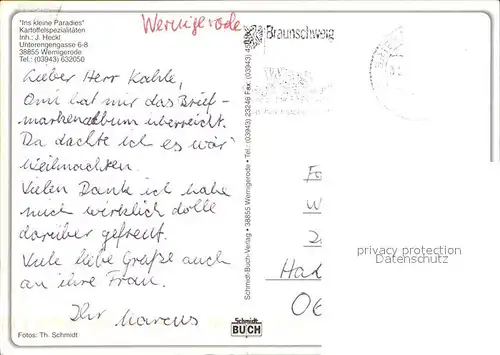 "Ins kleine Paradies"
Kartoffelspezialitäten
Inh.: J. Heckl
Unterengengasse 6-8
38855 Wernigerode
Tel.: (03943) 632050
Wernigerode
Braunschweig
Lieber Herr Kahle,
Omi hat mir das Brief-
markenalbum überreicht.
Da dachte ich es wär
Weihnachten.
Vielen Dank ich habe
mich wirklich dolle
darüber gefreut.
Viele liebe Grüße auch
an ihre Frau.
Ihr Marcus
Fotos: Th. Schmidt
Schmidt-Buch-Verlag • 38855 Wernigerode • Tel.: (03943) 23246 Fax (03943)
Schmidt
BUCH
W
Ha
06
privacy protection
Datenschutz